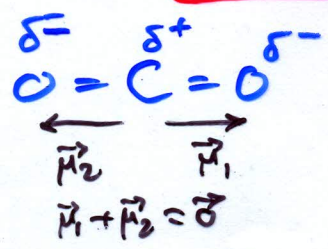 δ- δ+ δ-
O = C = O
μ⃗₂ μ⃗₁
μ⃗₁ + μ⃗₂ = 0⃗